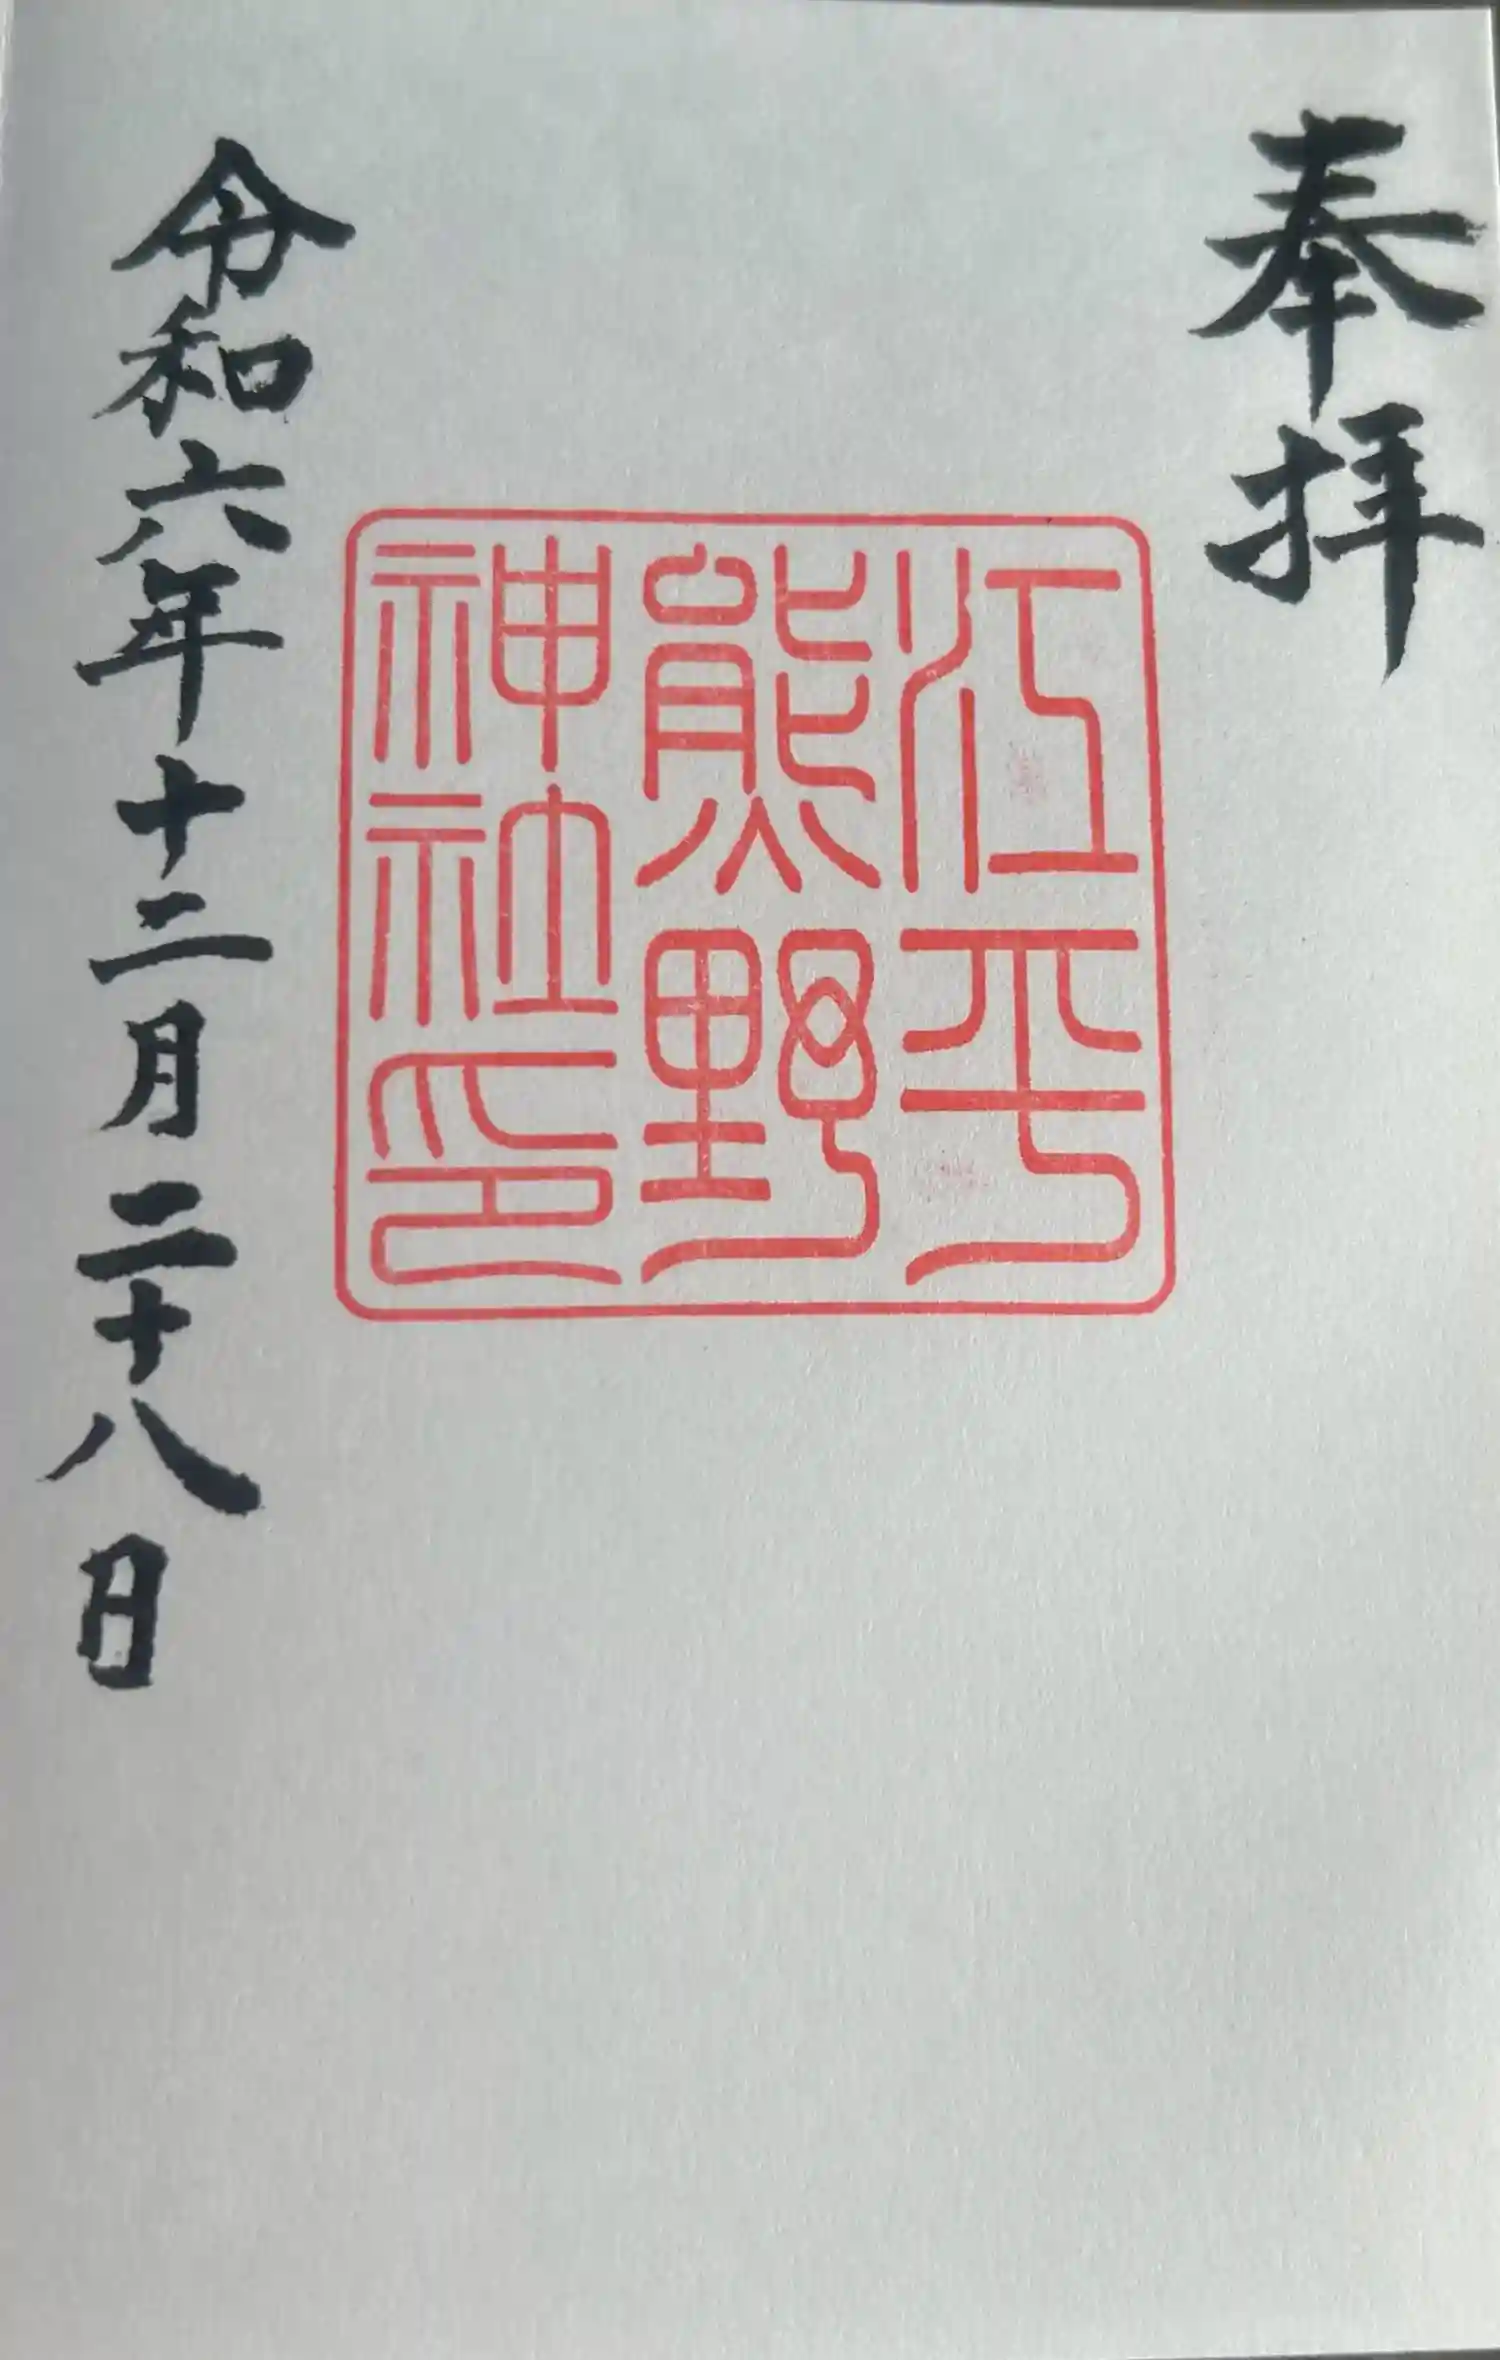 奉拝
江平
熊野
神社印
令和六年十二月二十八日